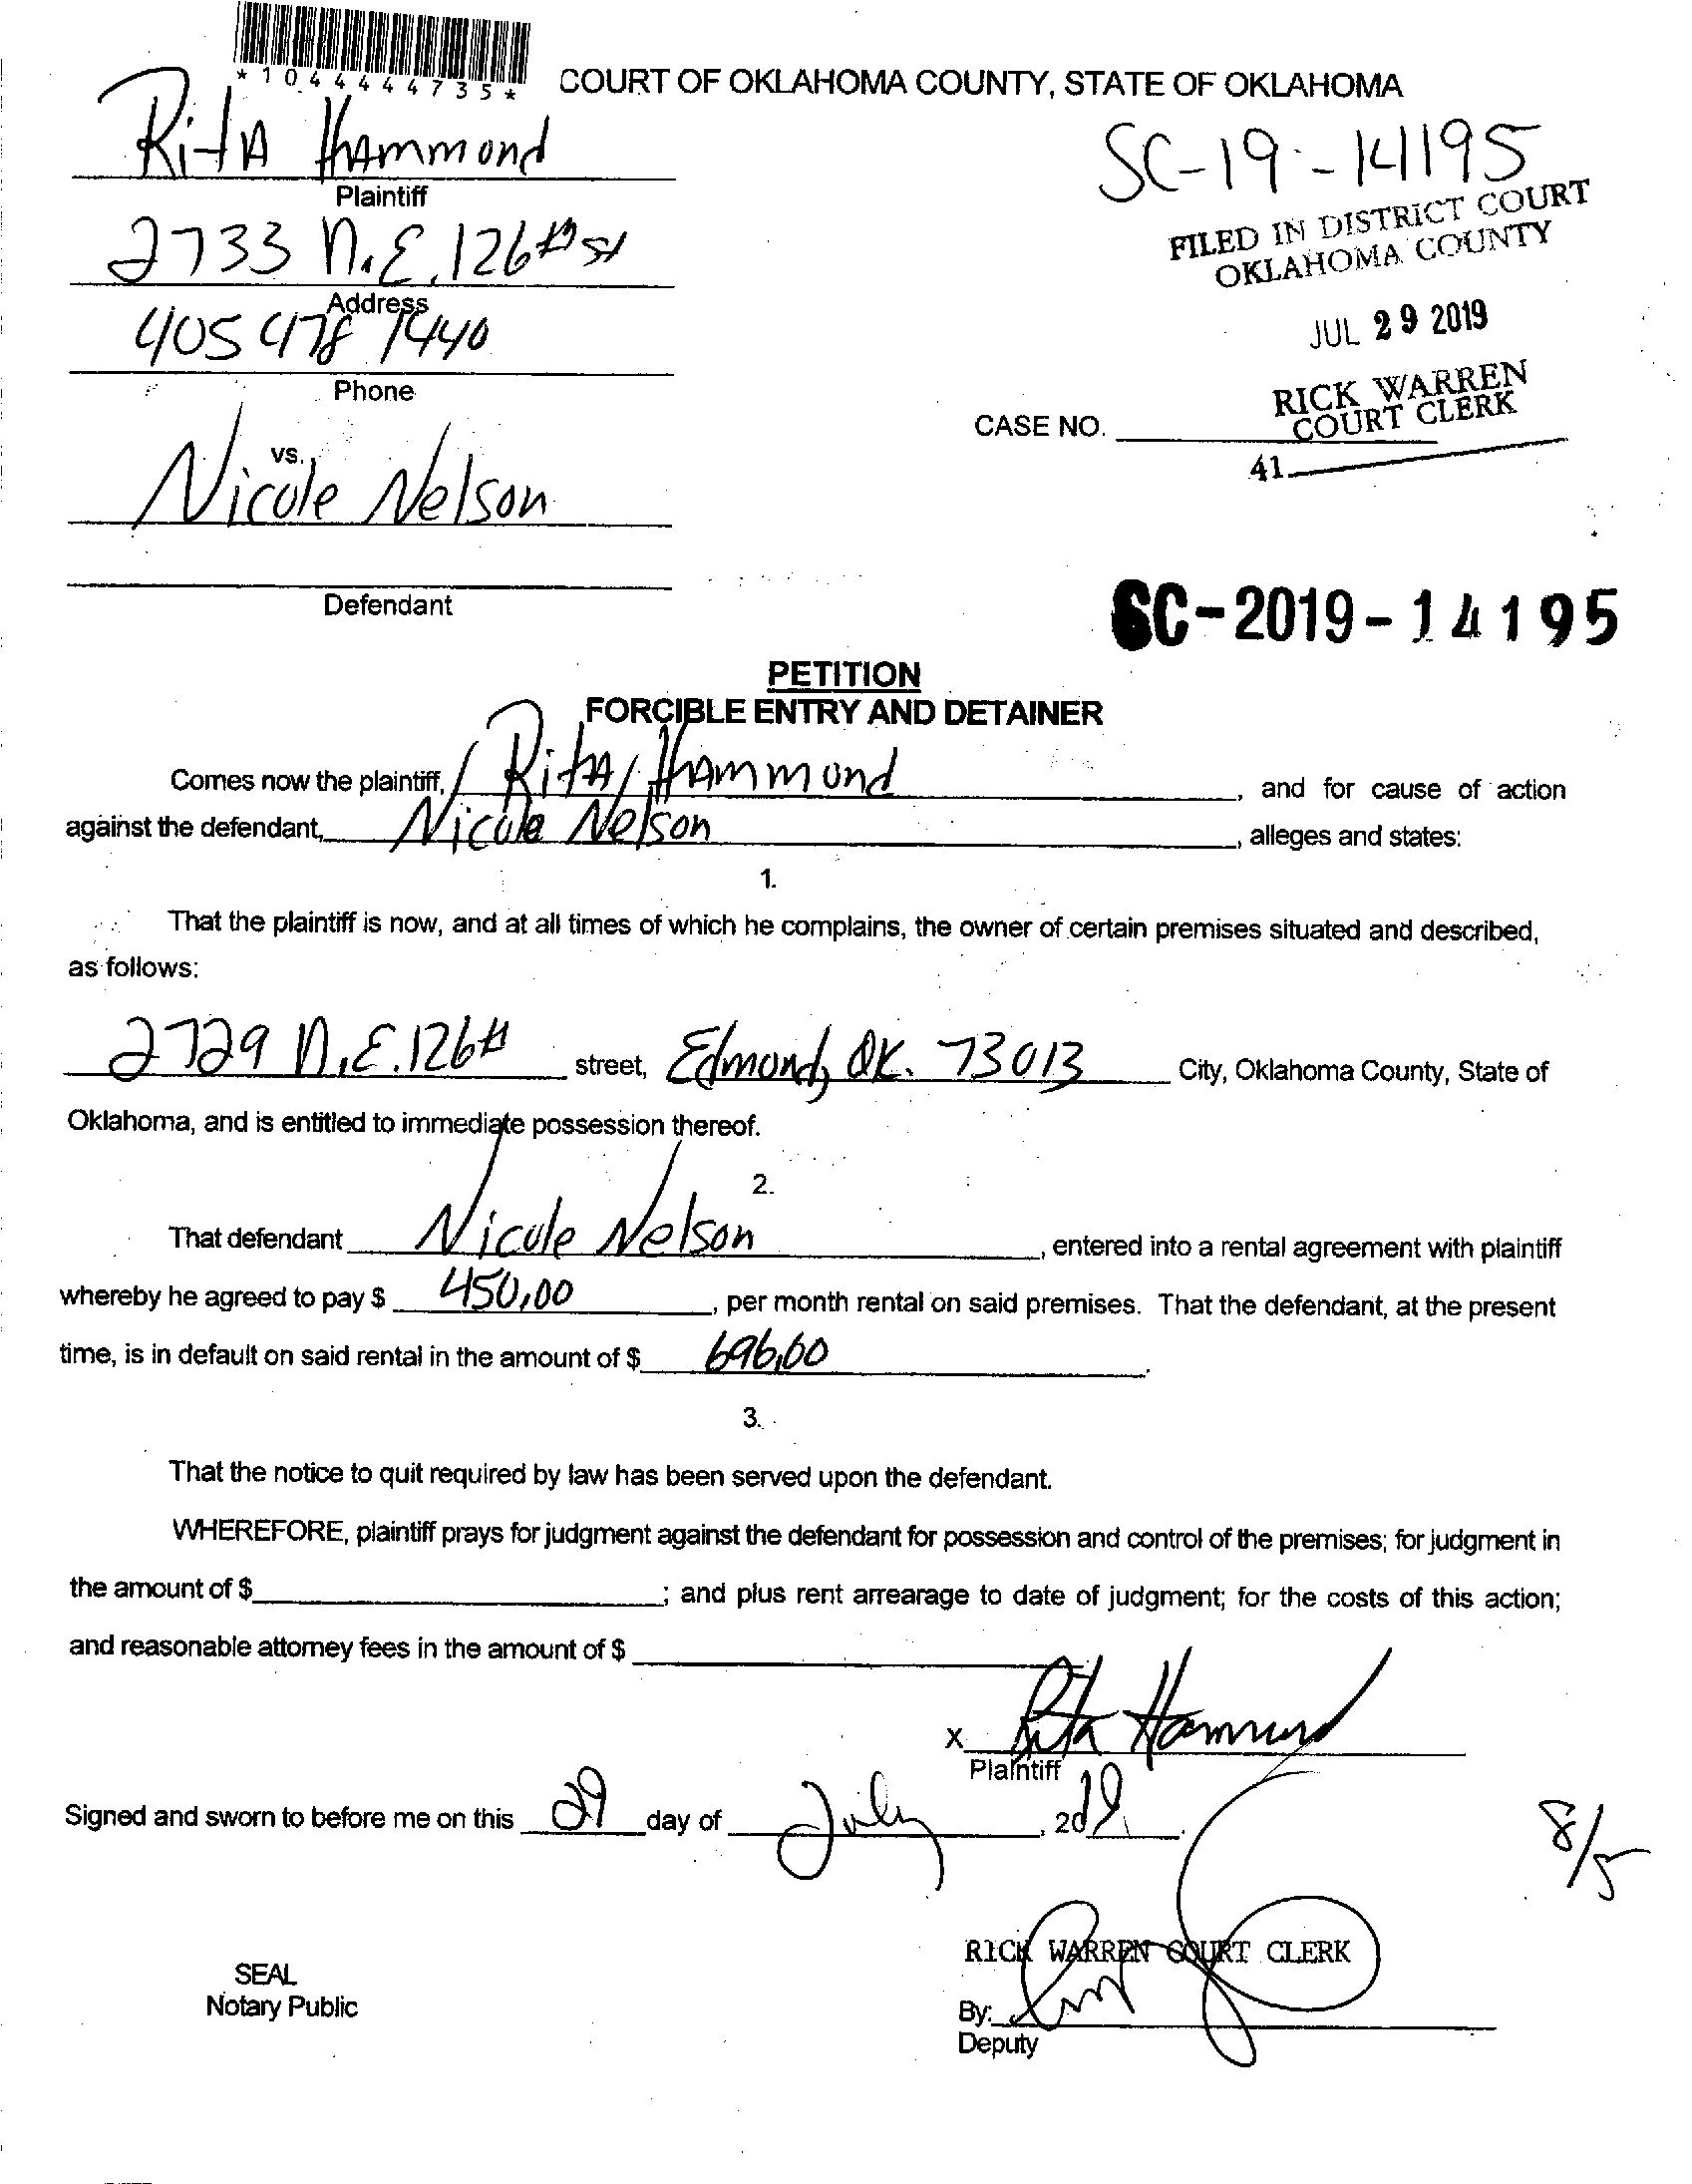 *1044444735*
COURT OF OKLAHOMA COUNTY, STATE OF OKLAHOMA
RitA HAmmond
Plaintiff
SC-19-14195
2733 N.E. 126th st
Address
FILED IN DISTRICT COURT
OKLAHOMA COUNTY
405 478 7440
Phone
JUL 29 2019
RICK WARREN
COURT CLERK
CASE NO.
41
vs.
Nicole Nelson
Defendant
SC-2019-14195
PETITION
FORCIBLE ENTRY AND DETAINER
Comes now the plaintiff, RitA HAmmond, and for cause of action
against the defendant, Nicole Nelson, alleges and states:
1.
That the plaintiff is now, and at all times of which he complains, the owner of certain premises situated and described,
as follows:
2729 N.E. 126th street, Edmond, OK. 73013 City, Oklahoma County, State of
Oklahoma, and is entitled to immediate possession thereof.
2.
That defendant Nicole Nelson, entered into a rental agreement with plaintiff
whereby he agreed to pay $ 450.00, per month rental on said premises. That the defendant, at the present
time, is in default on said rental in the amount of $ 696.00.
3.
That the notice to quit required by law has been served upon the defendant.
WHEREFORE, plaintiff prays for judgment against the defendant for possession and control of the premises; for judgment in
the amount of $; and plus rent arrearage to date of judgment; for the costs of this action;
and reasonable attorney fees in the amount of $
X Rita Hammond
Plaintiff
Signed and sworn to before me on this 29 day of July, 2019.
8/5
RICK WARREN COURT CLERK
SEAL
Notary Public
By:
Deputy